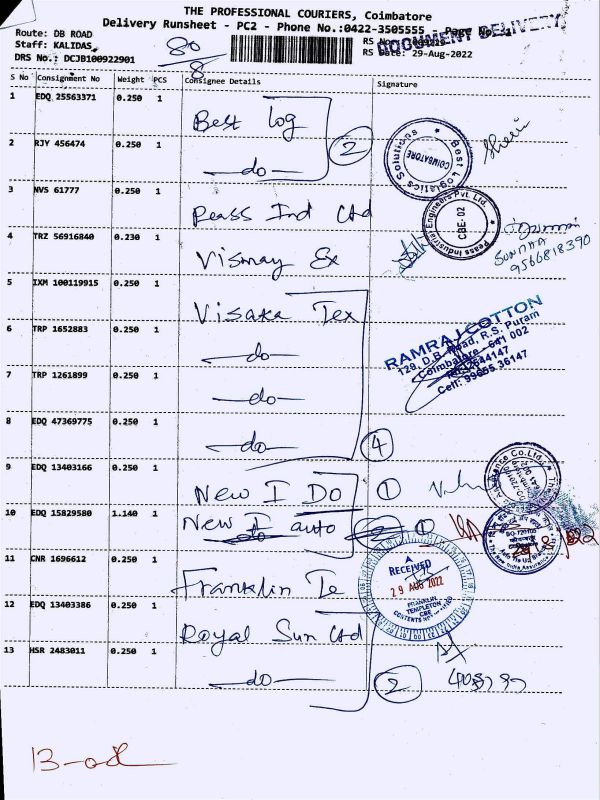 THE PROFESSIONAL COURIERS, Coimbatore
Delivery Runsheet - PC2 - Phone No.:0422-3505555 - Page No.
DOCUMENT DELIVERY
Route: DB ROAD
Staff: KALIDAS,
DRS No.: DCJB100922901
80/8
RS Date: 29-Aug-2022
S No Consignment No Weight PCS Consignee Details Signature
1 EDQ 25563371 0.250 1 Best log
2 RJY 456474 0.250 1 -do- 2
Best Logistics Solutions COIMBATORE
3 NVS 61777 0.250 1 Peass Ind Ltd
Peass Industrial Engineers Pvt. Ltd. CBE-02
4 TRZ 56916840 0.230 1 Vismay Ex
9566818390
5 IXM 100119915 0.250 1 Visaka Tex
RAMRAJ COTTON
129, D.B. Road, R.S. Puram
Coimbatore - 641 002
Cell: 99655 36147
6 TRP 1652883 0.250 1 -do-
7 TRP 1261899 0.250 1 -do-
8 EDQ 47369775 0.250 1 -do- 4
9 EDQ 13403166 0.250 1 New I Do 1
10 EDQ 15829580 1.140 1 New I auto 1
11 CNR 1696612 0.250 1 Franklin Te
RECEIVED
29 AUG 2022
FRANKLIN
TEMPLETON
CBE
12 EDQ 13403386 0.250 1 Royal Sun Ltd
13 HSR 2483011 0.250 1 -do- 2